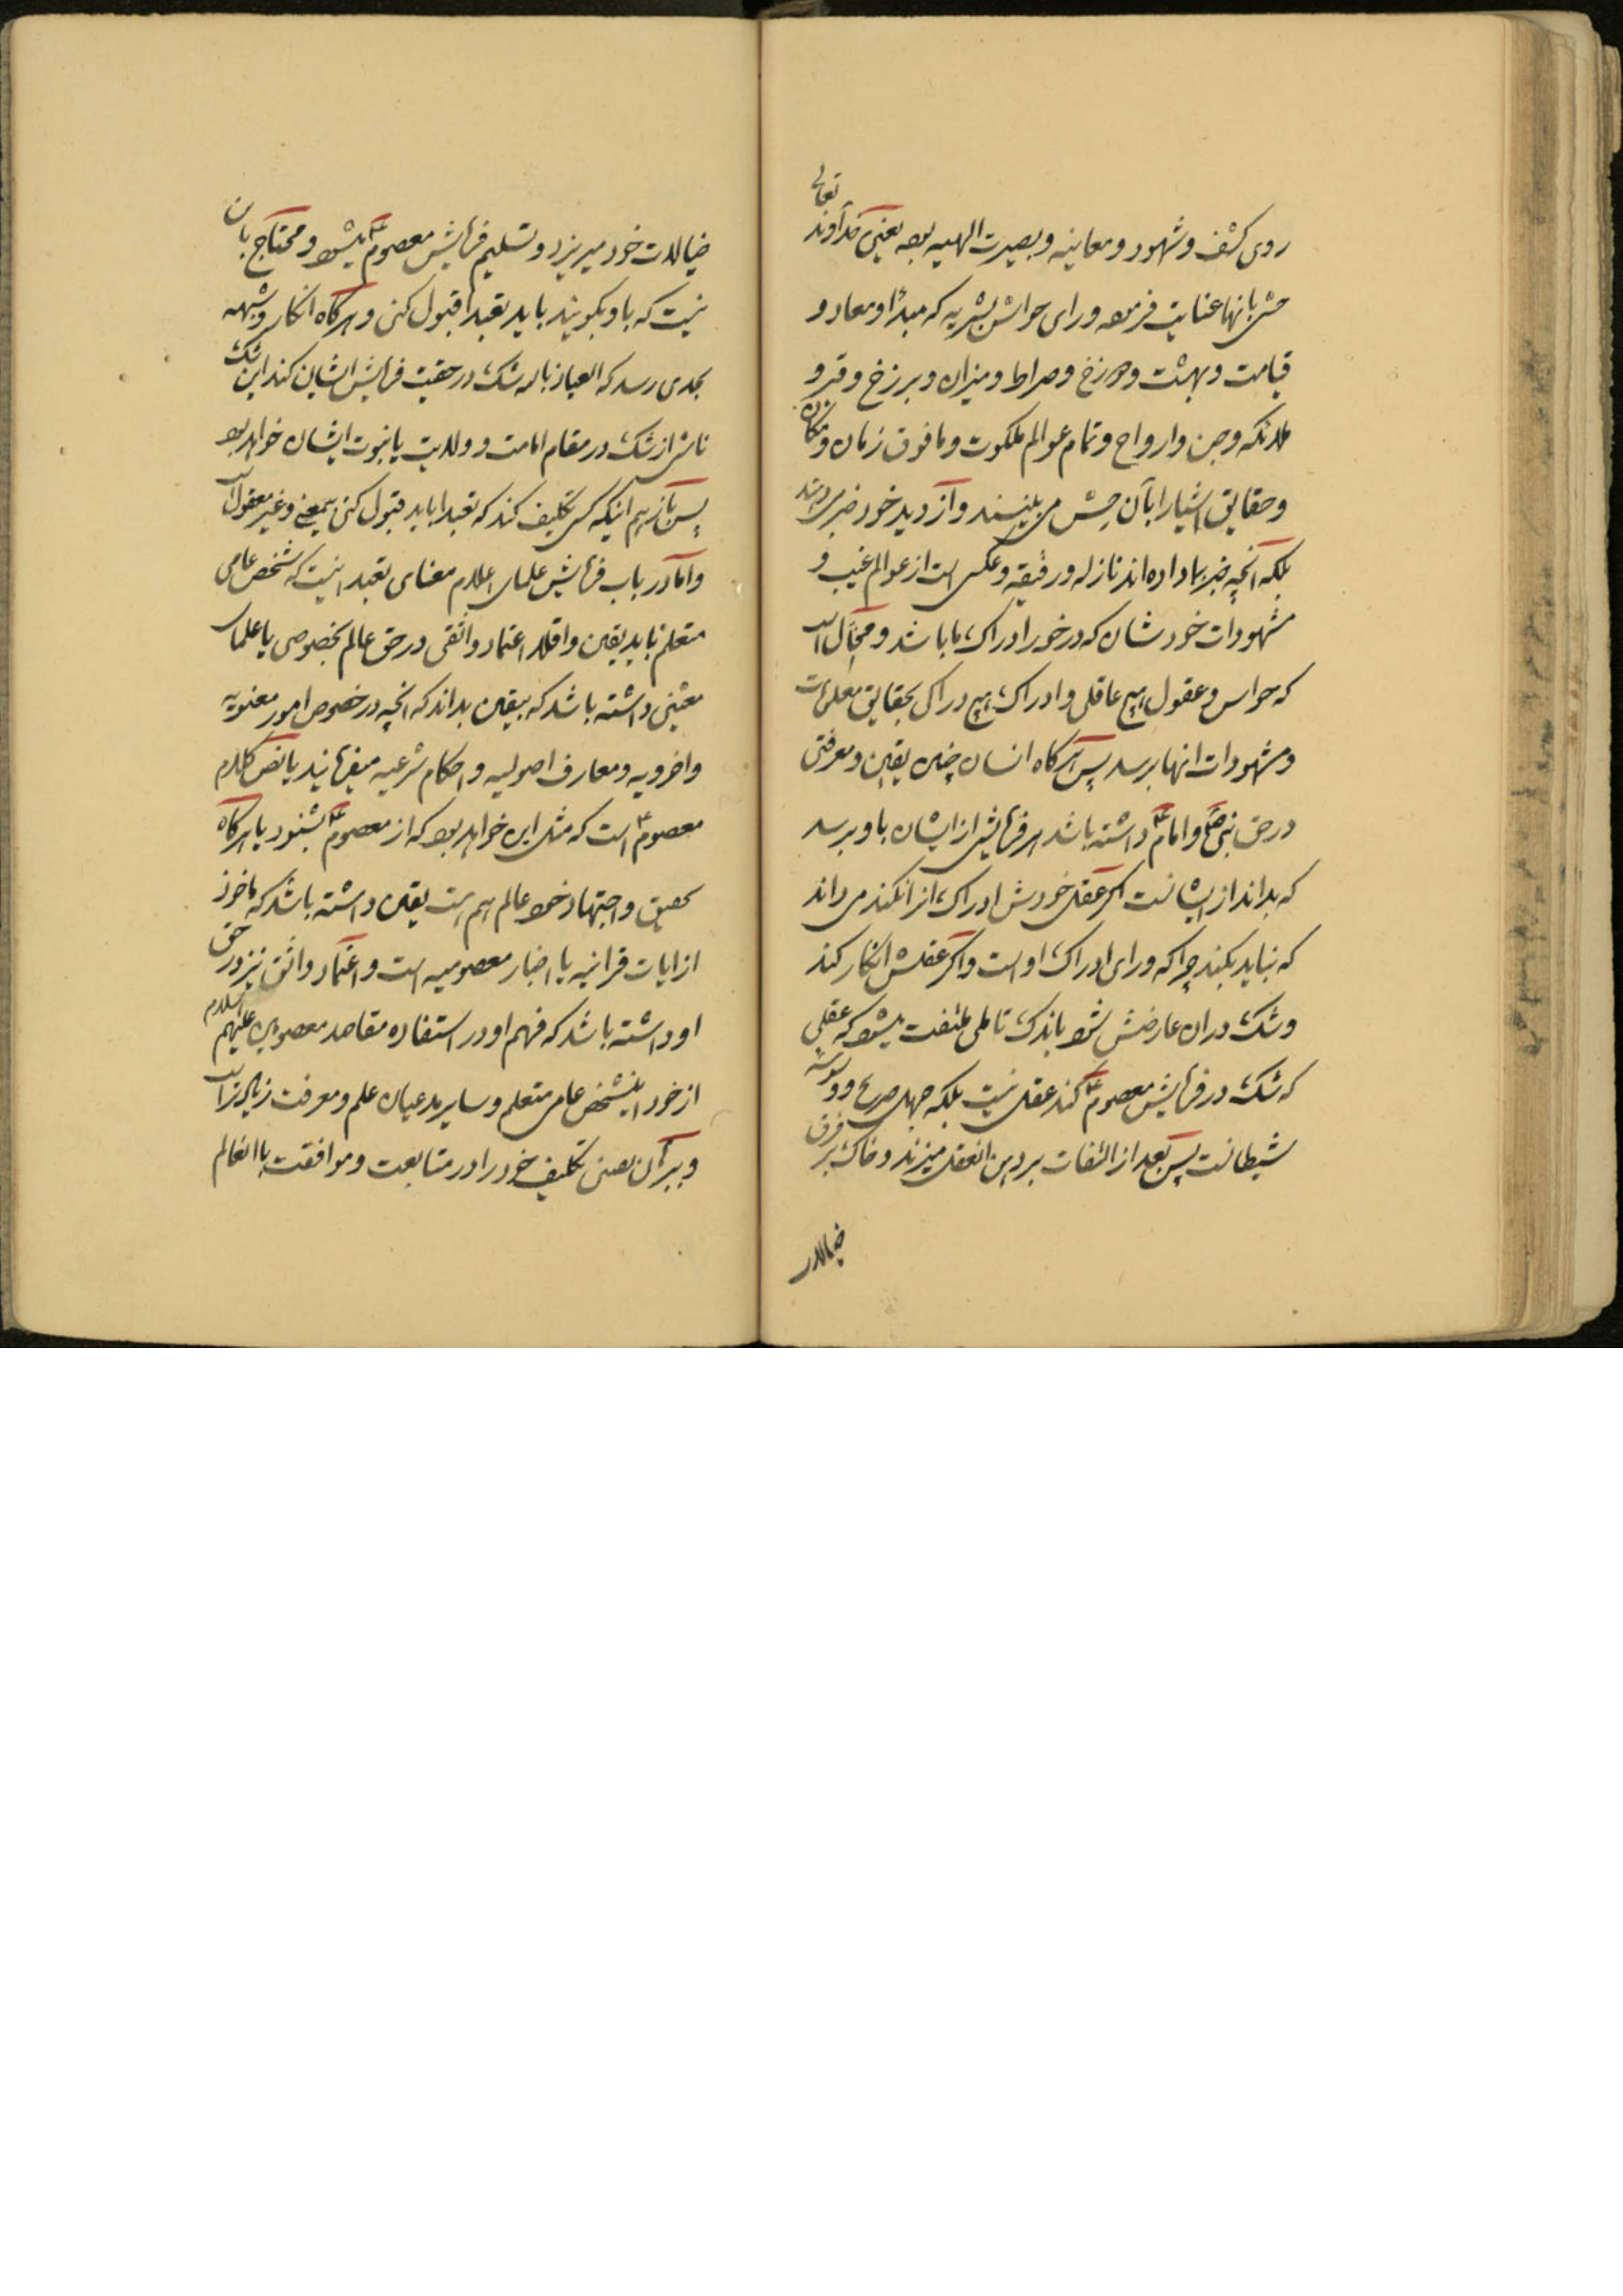 روی کشف و شهود و معاینه و بصیرت الهیه بوده یعنی خداوند تعالی
حسّی بانها عنایت فرموده ورای حواس بشریه که مبدأ و معاد و
قیامت و بهشت و دوزخ و صراط و میزان و برزخ و قبر و
ملائکه و جن و ارواح و تمام عوالم ملکوت و مافوق زمان و مکان
و حقایق اشیا را بآن حسّ می بینند و از دید خود خبر می دهند
بلکه آنچه خبر بما داده اند نازله و رقیقه و عکسی است از عوالم غیب و
مشهودات خودشان که درخور ادراک ما باشد و محال است
که حواس و عقول هیچ عاقلی و ادراک هیچ درّاکی بحقایق معلومات
و مشهودات انها برسد پس هرگاه انسان چنین یقین و معرفتی
در حق نبی ص و امام ع داشته باشد هر فرمایشی از ایشان باو برسد
که بداند از ایشانست اگر عقل خودش ادراک انرا نکند می داند
که نباید بکند چرا که ورای ادراک او است و اگر عقلش انکار کند
و شک در ان عارضش شود باندک تاملی ملتفت میشود که عقلی
که شک در فرمایش معصوم ع کند عقل نیست بلکه جهل صرف و وسوسه
شیطانست پس بعد از التفات بر دهن انعقل میزند و خاک بر فرق
خیالات
خیالات خود میریزد و تسلیم فرمایش معصوم ع میشود و محتاج بان
نیست که باو بگویند باید تعبدا قبول کنی و هرگاه انکار و شبهه
بحدی رسد که العیاذ بالله شک در حقیت فرمایش ایشان کند این شک
ناشی از شک در مقام امامت و ولایت یا نبوت ایشان خواهد بود
پس باز هم اینکه کسی تکلیف کند که تعبدا باید قبول کنی بیمعنی و غیر معقول است
و اما در باب فرمایش علمای اعلام معنای تعبد اینست که شخص عامی
متعلم باید یقین و اقلا اعتماد واثقی در حق عالم بخصوصی یا علمای
معیّنی داشته باشد که بیقین بداند که انچه در خصوص امور معنویه
و اخرویه و معارف اصولیه و احکام شرعیه میفرمایند یا نص کلام
معصوم ع است که مثل این خواهد بود که از معصوم ع بشنود یا هرگاه
تحقیق و اجتهاد خود عالم هم هست یقین داشته باشد که ماخوذ
از ایات قرانیه یا اخبار معصومیه است و اعتماد واثق نیز در حق
او داشته باشد که فهم او در استفاده مقاصد معصومین علیهم السلام
از خود اینشخص عامی متعلم و سایر مدعیان علم و معرفت زیادتر است
و ببرکت ان یقین تکلیف خود را در متابعت و موافقت با انعالم